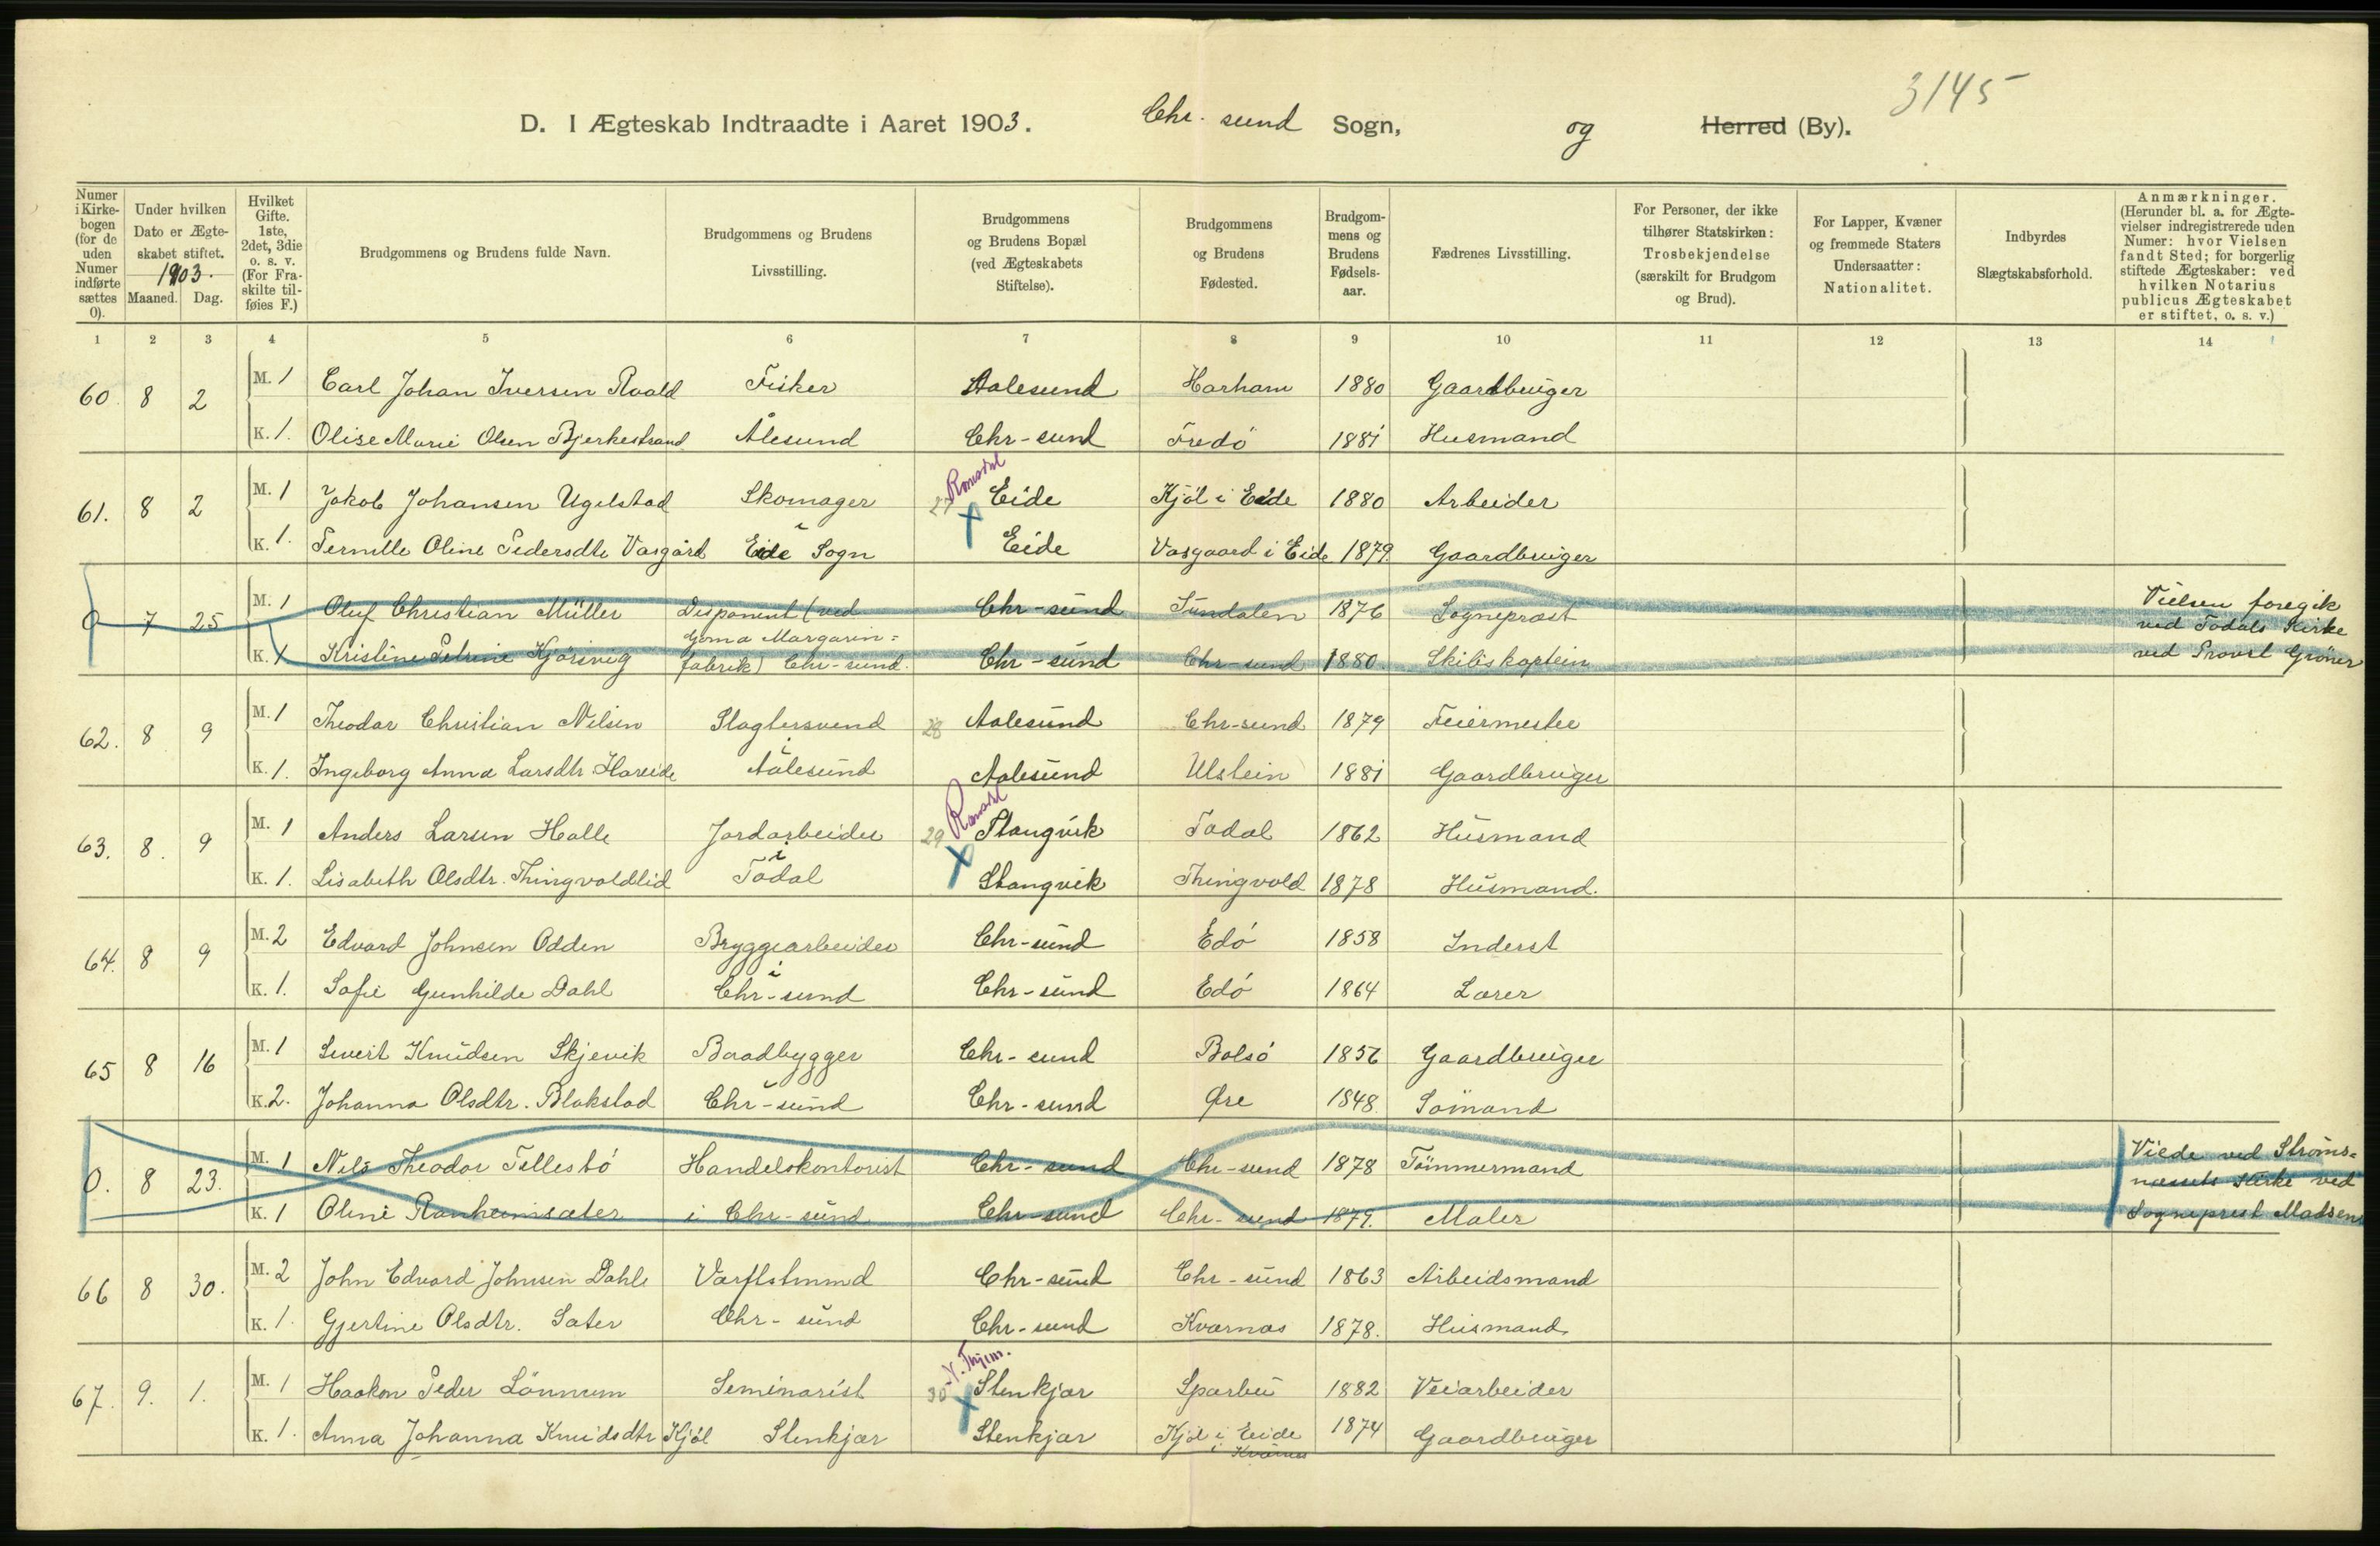 3145
D. I Ægteskab Indtraadte i Aaret 1903. Chr. sund Sogn, og Herred (By).
Numer i Kirke-bogen (for de uden Numer indførte sættes 0).
Under hvilken Dato er Ægte-skabet stiftet. 1903. Maaned. Dag.
Hvilket Gifte. 1ste, 2det, 3die o. s. v. (For Fra-skilte til-føies F.)
Brudgommens og Brudens fulde Navn.
Brudgommens og Brudens Livsstilling.
Brudgommens og Brudens Bopæl (ved Ægteskabets Stiftelse).
Brudgommens og Brudens Fødested.
Brudgom-mens og Brudens Fødsels-aar.
Fædrenes Livsstilling.
For Personer, der ikke tilhører Statskirken: Trosbekjendelse (særskilt for Brudgom og Brud).
For Lapper, Kvæner og fremmede Staters Undersaatter: Nationalitet.
Indbyrdes Slægtskabsforhold.
Anmærkninger. (Herunder bl. a. for Ægte-vielser indregistrerede uden Numer: hvor Vielsen fandt Sted; for borgerlig stiftede Ægteskaber: ved hvilken Notarius publicus Ægteskabet er stiftet, o. s. v.)
1 2 3 4 5 6 7 8 9 10 11 12 13 14
60. 8 2 M. 1 Carl Johan Iversen Roald Fisker Aalesund Harham 1880 Gaardbruger
K. 1. Olise Marie Olsen Bjerkestrand Ålesund Chr-sund Fredö 1881 Husmand
61. 8 2 M. 1 Jakob Johansen Ugelstad Skomager Romsdal Eide Kjöl i Eide 1880 Arbeider
K. 1. Pernille Oline Pedersdtr Vasgård i Eide Sogn Eide Vasgaard i Eide 1879. Gaardbruger
0 7 25 M. 1 Oluf Christian Müller Disponent (ved Chr-sund Sundalen 1876 Sognepræst Vielsen foregik ved Todals Kirke
K. 1 Kristine Petrine Kjörsvig Goma Margarin= fabrik) Chr-sund. Chr-sund Chr-sund 1880. Skibskaptein ved Provst Gröner
62. 8 9 M. 1 Theodor Christian Nilsen Slagtersvend 28 Aalesund Chr-sund 1879 Feiermester
K. 1. Ingeborg Anna Larsdtr Hareide i Aalesund Aalesund Ulstein 1881 Gaardbruger
63. 8. 9 M. 1 Anders Larsen Halle Jordarbeider 29 Romsdal Stangvik Todal 1862 Husmand
K. 1. Lisabeth Olsdtr. Thingvoldlid i Todal Stangvik Thingvold 1878 Husmand.
64. 8 9 M. 2 Edvard Johnsen Odden Bryggearbeider Chr-sund Edö 1858 Inderst
K. 1. Sofie Gunhilde Dahl i Chr-sund Chr-sund Edö 1864 Lærer
65 8 16 M. 1 Sivert Knudsen Skjevik Baadbygger Chr-sund Bolsö 1856 Gaardbruger
K. 2. Johanna Olsdtr. Blakstad Chr-sund Chr-sund Øre 1848. Sömand
0. 8 23. M. 1 Nils Theodor Tellestö Handelskontorist Chr-sund Chr-sund 1878 Tömmermand Viede ved Ströms= næssets Kirke ved
K. 1 Oline Ranheimsæter i Chr-sund Chr-sund Chr-sund 1879. Maler Sogneprest Madsen
66 8 30. M. 2 John Edvard Johnsen Dahle Varftstmmd Chr-sund Chr-sund 1863 Arbeidsmand
K. 1. Gjertine Olsdtr. Sæter Chr-sund Chr-sund Kvarnæs 1878. Husmand
67. 9. 1. M. 1 Haakon Peder Lönnum Seminarist 30 N. Thjem. Stenkjær Sparbu 1882 Veiarbeider
K. 1. Anna Johanna Knudsdtr Kjöl Stenkjær Stenkjær Kjöl i Eide i Kvarnæs 1874 Gaardbruger